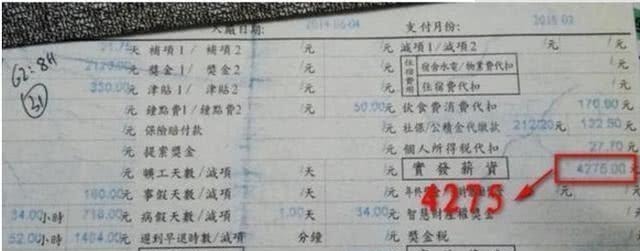 入廠日期: 2014-06-04 支付月份:
21.75天 補項1/ 補項2 /元 減項1/減項2 /元
元 獎金1/ 獎金2 /元 住宿費用 宿舍水電/物業費代扣 /元
350.00元 津貼1/ 津貼2 /元 住宿費代扣 /元
/元 鐘點費1/鐘點費2 50.00元 伙食費消費代扣 170.60元
/元 保險賠付款 /元 社保/公積金代繳款 212/20元 132.50元
/元 提案獎金 /元 個人所得稅代扣 27.70元
/元 曠工天數/減項 /天 /元 實發薪資 4275.00元
160.00元 事假天數/減項 /天 /元
34.00小時 718.00元 病假天數/減項 1.00天 34.00元 智慧財產權獎金 /元
52.00小時 1464.00元 遲到早退時數/減項 分鐘 /元 獎金稅 /元
G2:84
21
4275